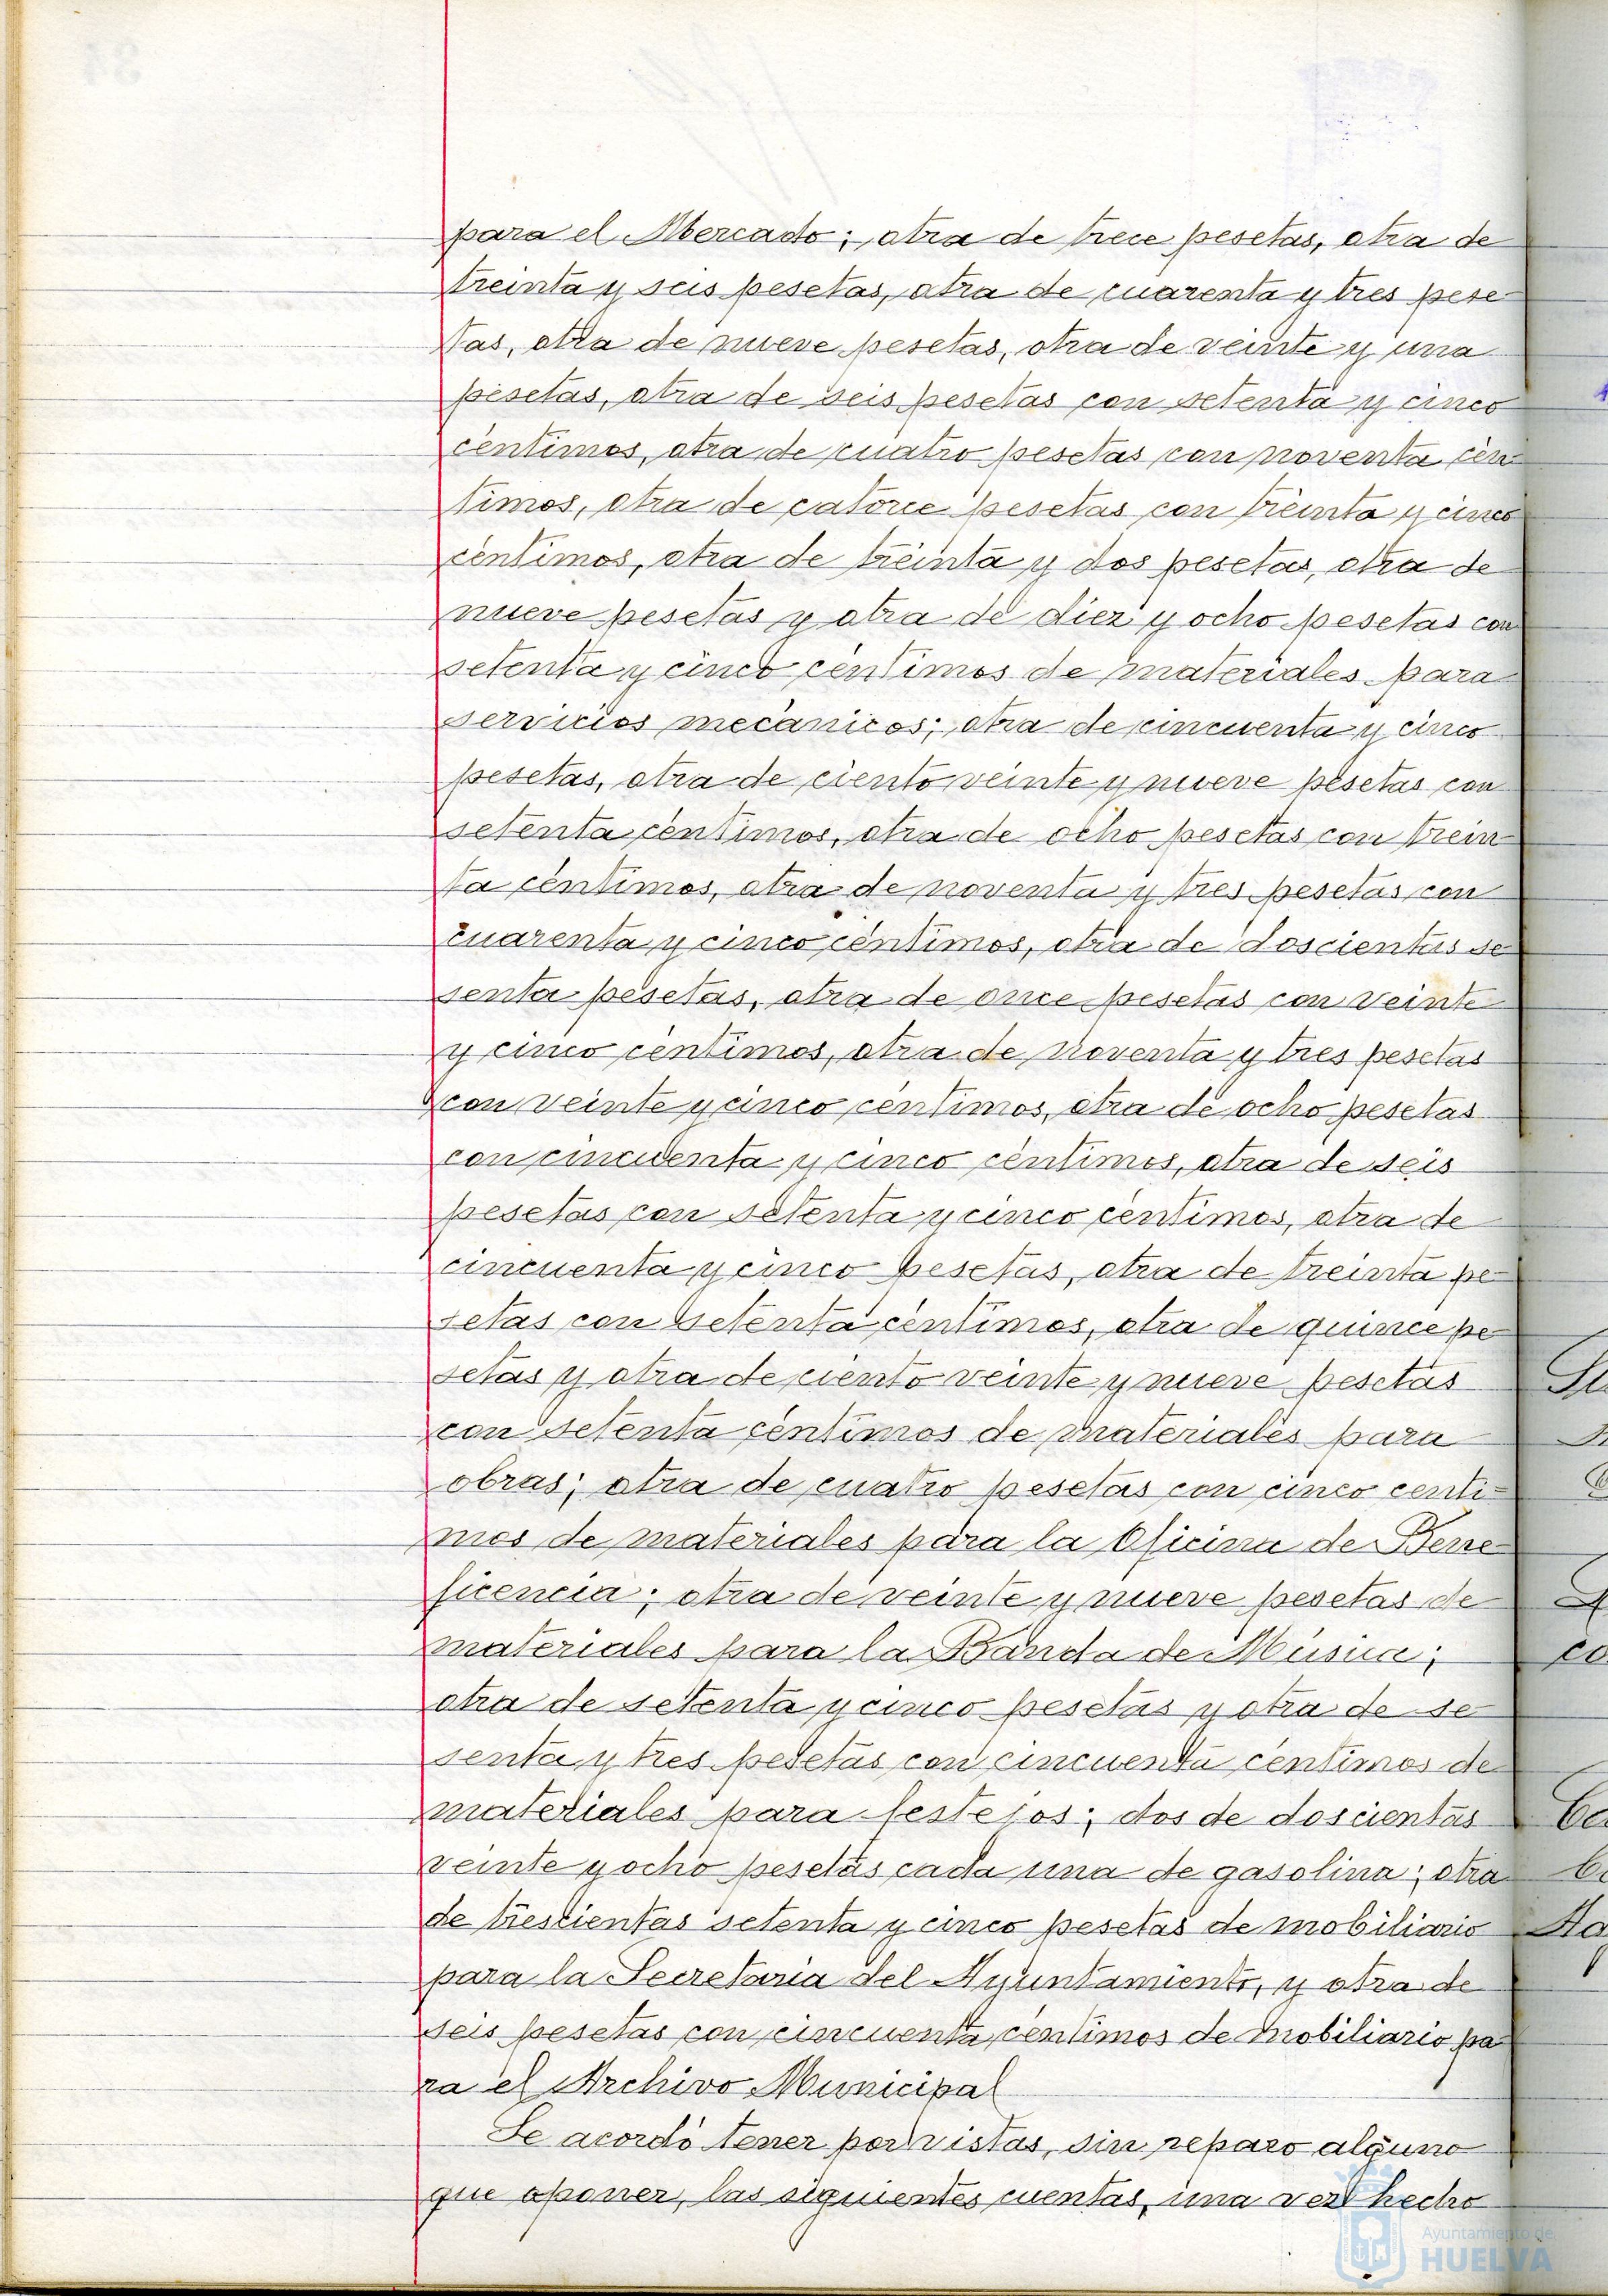 para el Mercado; otra de trece pesetas, otra de
treinta y seis pesetas, otra de cuarenta y tres pese-
tas, otra de nueve pesetas, otra de veinte y una
pesetas, otra de seis pesetas con setenta y cinco
céntimos, otra de cuatro pesetas con noventa cén-
timos, otra de catorce pesetas con treinta y cinco
céntimos, otra de treinta y dos pesetas, otra de
nueve pesetas y otra de diez y ocho pesetas con
setenta y cinco céntimos de materiales para
servicios mecánicos; otra de cincuenta y cinco
pesetas, otra de ciento veinte y nueve pesetas con
setenta céntimos, otra de ocho pesetas con trein-
ta céntimos, otra de noventa y tres pesetas con
cuarenta y cinco céntimos, otra de doscientas se-
senta pesetas, otra de once pesetas con veinte
y cinco céntimos, otra de noventa y tres pesetas
con veinte y cinco céntimos, otra de ocho pesetas
con cincuenta y cinco céntimos, otra de seis
pesetas con setenta y cinco céntimos, otra de
cincuenta y cinco pesetas, otra de treinta pe-
setas con setenta céntimos, otra de quince pe-
setas y otra de ciento veinte y nueve pesetas
con setenta céntimos de materiales para
obras; otra de cuatro pesetas con cinco centi-
mos de materiales para la Oficina de Bene-
ficencia; otra de veinte y nueve pesetas de
materiales para la Banda de Música;
otra de setenta y cinco pesetas y otra de se-
senta y tres pesetas con cincuenta centimos de
materiales para festejos; dos de doscientas
veinte y ocho pesetas cada una de gasolina; otra
de trescientas setenta y cinco pesetas de mobiliario
para la Secretaría del Ayuntamiento, y otra de
seis pesetas con cincuenta céntimos de mobiliario pa-
ra el Archivo Municipal
Se acordó tener por vistas, sin reparo alguno
que oponer, las siguientes cuentas, una vez hecho
Ayuntamiento de
HUELVA